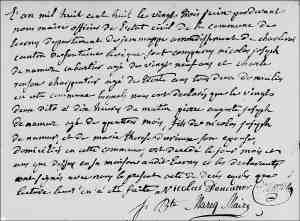 L'an mil huit cent huit le vingt trois juin pardevant
nous maire officier de l'état civil de la commune de
département de jemmappe arrondissement de charleroi
canton de fontaine l'évêque, sont comparus nicolas joseph
de namur âgé de vingt neuf ans et
charpentier âgé de trente ans tous deux domiciliés
en cette commune lesquels nous ont déclarés que le vingt
deux dito à dix heures du matin pierre auguste joseph
de namur âgé de quatre mois, fils de nicolas joseph
de namur et de marie son épouse
domiciliés en cette commune est décédé le jour mois et
an que dessus en sa maison et les déclarants
ont signés avec nous le présent acte de décès après que
lecture leur en a été faite Nicolas Denamur
J. Bte Marcq Maire